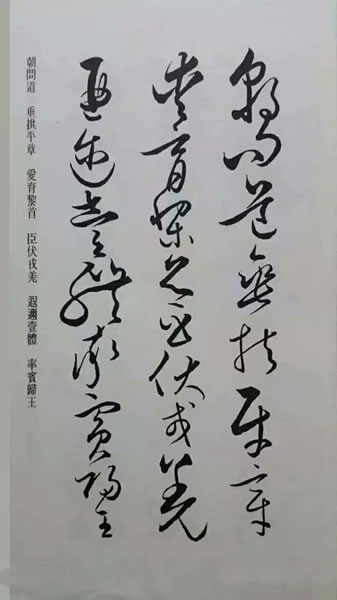 朝問道垂拱平章
愛育黎首臣伏戎羌
遐邇壹體率賓歸王
朝問道 垂拱平章 愛育黎首 臣伏戎羌 遐邇壹體 率賓歸王